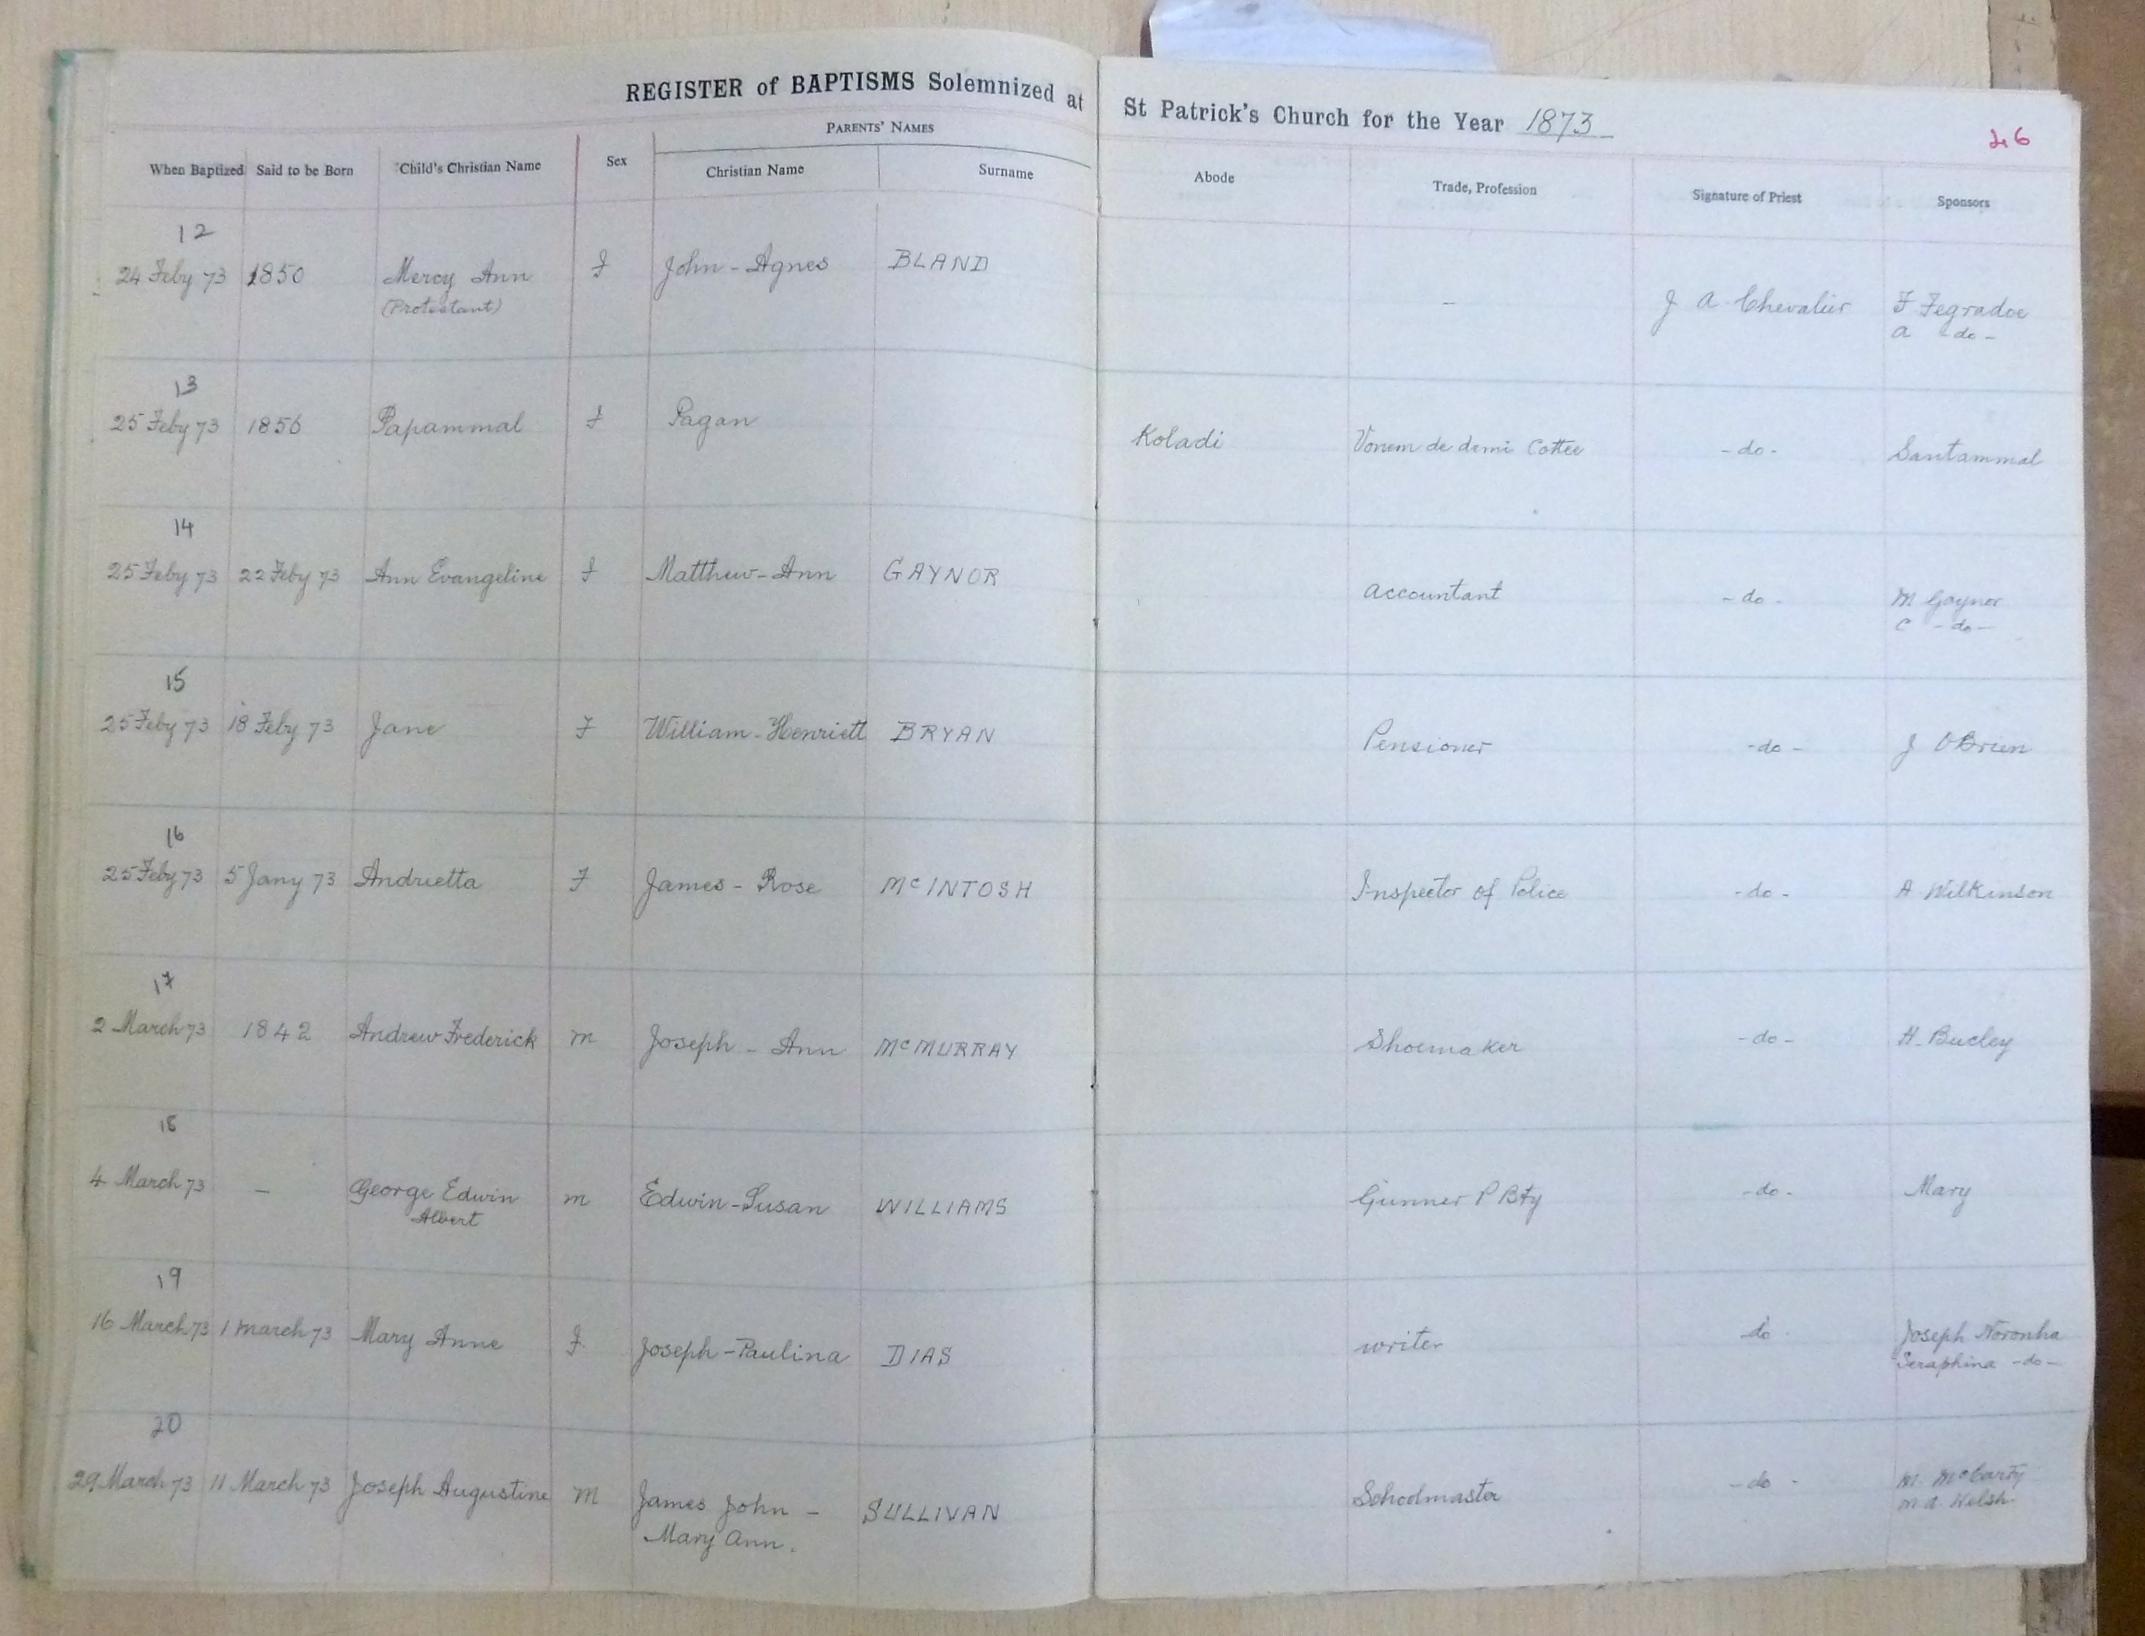 REGISTER of BAPTISMS Solemnized at St Patrick's Church for the Year 1873
46
PARENTS' NAMES
When Baptized Said to be Born Child's Christian Name Sex Christian Name Surname Abode Trade, Profession Signature of Priest Sponsors
12
24 Feby 73 1850 Mercy Ann F John - Agnes BLAND - J A Chevalier F Fegradoe
(Protestant) A - do -
13
25 Feby 73 1856 Papammal F Pagan Koladi de demi - do - Santammal
14
25 Feby 73 22 Feby 73 Ann Evangeline F Matthew - Ann GAYNOR accountant - do - M Gaynor
C - do -
15
25 Feby 73 18 Feby 73 Jane F William - Henriett BRYAN Pensioner - do - J O'Brien
16
25 Feby 73 5 Jany 73 Andrietta F James - Rose McINTOSH Inspector of Police - do - A Wilkinson
17
2 March 73 1842 Andrew Frederick m Joseph - Ann McMURRAY Shoemaker - do - H. Bucley
18
4 March 73 - George Edwin m Edwin - Susan WILLIAMS Gunner P Bty - do - Mary
Albert
19
16 March 73 1 march 73 Mary Anne F Joseph - Paulina DIAS writer do Joseph Noronha
Seraphina - do -
20
29 March 73 11 March 73 Joseph Augustine M James John - SULLIVAN Schoolmaster - do - M. McCarty
Mary Ann. M.A. Welsh